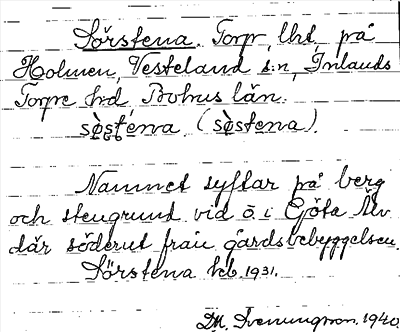 Sörstena. Torp, lht, på
Holmen, Vesteland s:n, Inlands
Torpe hd, Bohus län.
sø̀sténa. (sø̀stena).
Namnet syftar på berg
och stengrund vid ö i Göta Älv
där söderut från gårdsbebyggelsen.
Sörstena kb. 1931.
DM. Svenungsson. 1940